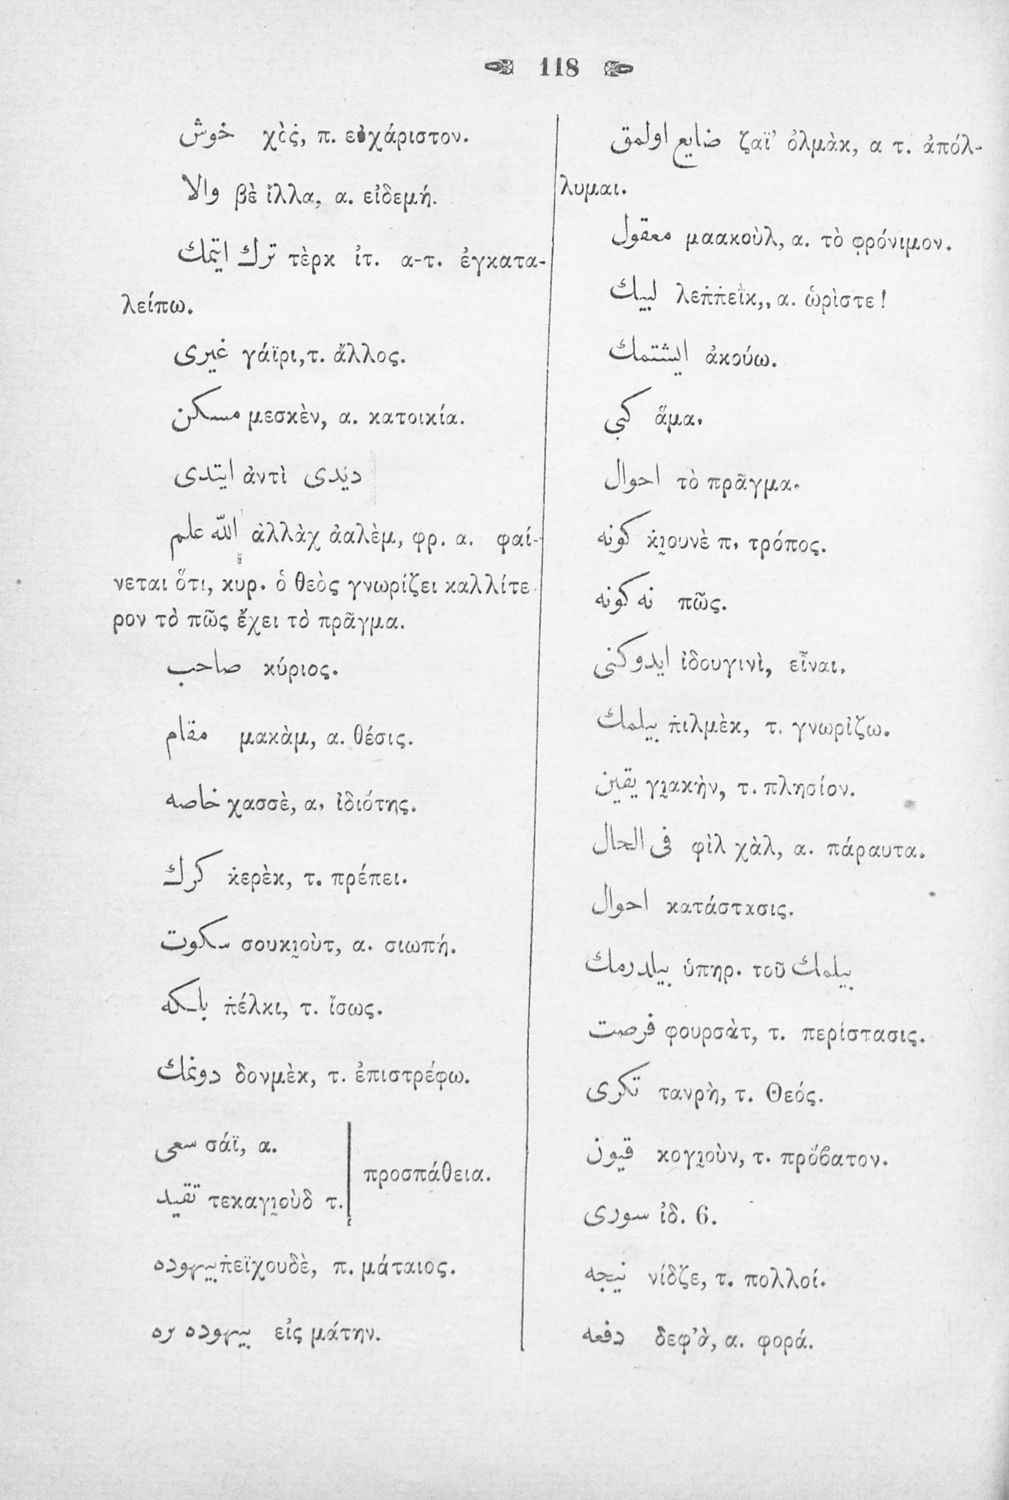 118
خوش χὸς, π. εὐχάριστον.
والا βὲ ἴλλα, α. εἰδεμή.
ترك ايتمك τὲρκ ἰτ. α-τ. ἐγκατα-
λείπω.
غيرى γάϊρι, τ. ἄλλος.
مسكن μεσκὲν, α. κατοικία.
ايتدى ἀντὶ ديدى
الله علم ἀλλὰχ ἀαλὲμ, φρ. α. φαί-
νεται ὅτι, κυρ. ὁ θεὸς γνωρίζει καλλίτε
ρον τὸ πῶς ἔχει τὸ πρᾶγμα.
صاحب κύριος.
مقام μακὰμ, α. θέσις.
خاصه χασσὲ, α, ἰδιότης.
كرك κ̇ερὲκ, τ. πρέπει.
سكوت σουκι̯οὺτ, α. σιωπή.
بلكه π̇έλκι, τ. ἴσως.
دونمك δονμὲκ, τ. ἐπιστρέφω.
سعى σάϊ, α.
تقيد τεκαγι̯οὺδ τ.
προσπάθεια.
بيهوده π̇εϊχουδὲ, π. μάταιος.
بيهوده يره εἰς μάτην.
ضايع اولمق ζαϊ̓ ὀλμὰκ, α τ. ἀπόλ-
λυμαι.
معقول μαακοὺλ, α. τὸ φρόνιμον.
لبيك λεπ̇π̇εῒκ,, α. ὡρὶστε!
ايشتمك ἀκούω.
كبى ἅμα.
احوال τὸ πρᾶγμα.
كونه κ̇ι̯ουνὲ π, τρόπος.
نه كونه πῶς.
ايدوكنى ἰδουγινὶ, εἶναι.
بيلمك π̇ιλμὲκ, τ. γνωρίζω.
يقين γι̯ακὴν, τ. πλησίον.
فى الحال φὶλ χὰλ, α. πάραυτα.
احوال κατάστασις.
بيلدرمك ὑπηρ. τοῦ بيلمك
فرصت φουρσὰτ, τ. περίστασις.
تكرى τανρὴ, τ. Θεός.
قيون κογι̯οὺν, τ. πρόβατον.
سورى ἰδ. 6.
نيجه νίδζε, τ. πολλοί.
دفعه δεφ’ὰ, α. φορά.